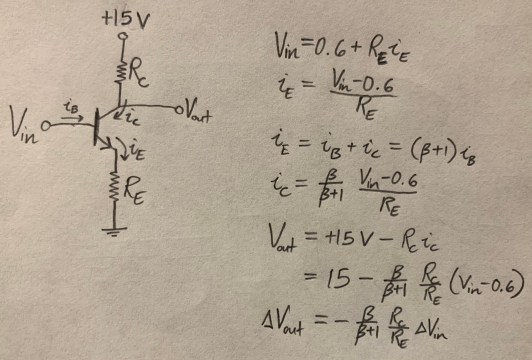 +15V
R_C
i_B
i_C
V_in
V_out
i_E
R_E
V_in = 0.6 + R_E i_E
i_E = (V_in - 0.6) / R_E
i_E = i_B + i_C = (β+1) i_B
i_C = β/(β+1) (V_in - 0.6)/R_E
V_out = +15V - R_C i_C
= 15 - β/(β+1) R_C/R_E (V_in - 0.6)
ΔV_out = - β/(β+1) R_C/R_E ΔV_in